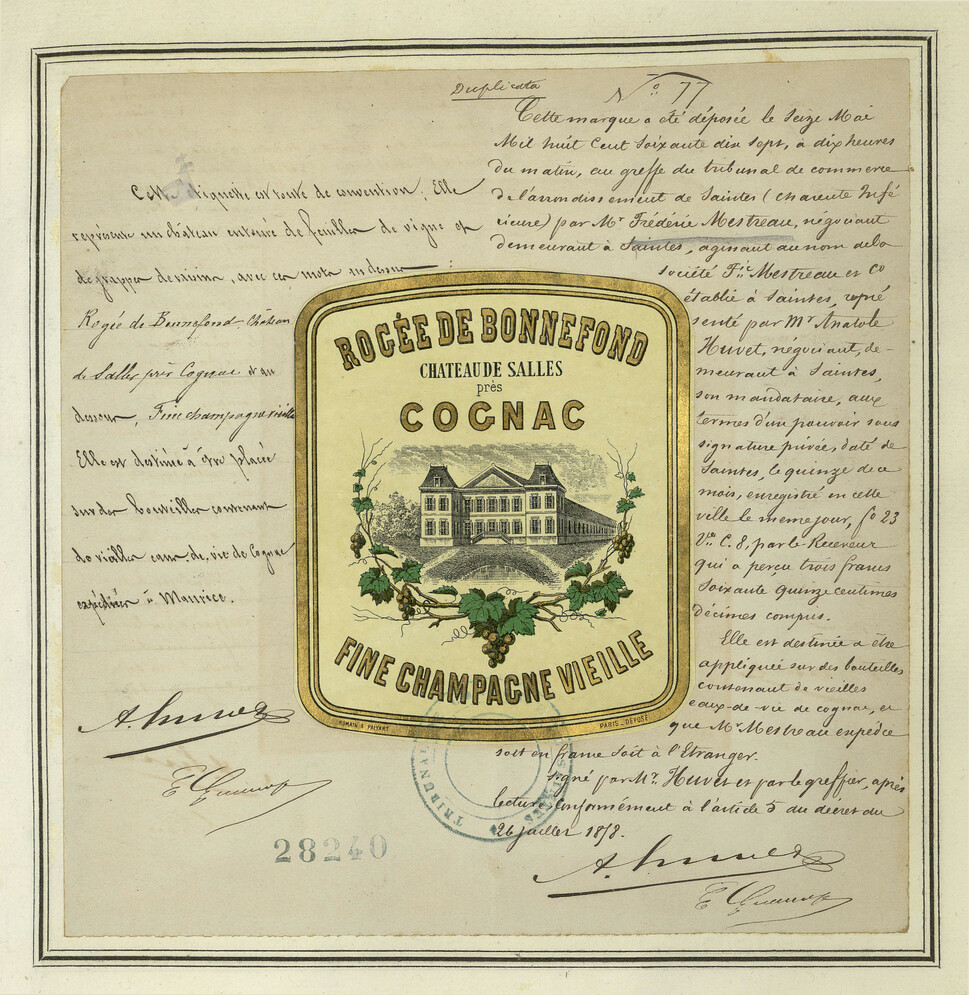 Duplicata
N° 77
Cette étiquette est toute de convention. Elle
représente un château entouré de feuilles de vigne et
de grappes de raisin, avec ces mots au dessus :
Rogée de Bonnefond Château
de Salles près Cognac et au
dessous, Fine champagne vieille
Elle est destinée à être placée
sur des bouteilles contenant
de vieilles eaux-de-vie de Cognac
expédiées à Maurice.
E Guenon
28240
ROGÉE DE BONNEFOND
CHATEAU DE SALLES
près
COGNAC
FINE CHAMPAGNE VIEILLE
ROMAIN & PALYART
PARIS - DÉPOSÉ
TRIBUNAL
SAINTES
Cette marque a été déposée le Seize Mai
Mil huit Cent Soixante dix sept, à dix heures
du matin, au greffe du tribunal de commerce
de l'arrondissement de Saintes (Charente Infé
rieure) par Mr Frédéric Mestreau, négociant
demeurant à Saintes, agissant au nom de la
société F.ic Mestreau et Co
établie à Saintes, repré
senté par Mr Anatole
Huvet, négociant, de-
meurant à Saintes,
son mandataire, aux
termes d'un pouvoir sous
signature privée, daté de
Saintes, le quinze de ce
mois, enregistré en cette
ville le meme jour, fo 23
Vo C. 8, par le Receveur
qui a perçu trois francs
Soixante Quinze centimes
Décimes compris.
Elle est destinée a être
appliquée sur des bouteilles
contenant de vieilles
eaux-de-vie de cognac, et
que Mr Mestreau expédie
soit en france soit à l'Etranger.
Signé par Mr. Huvet et par le greffier, après
lecture, conformément à l'article 5 du décret du
26 juillet 1858.